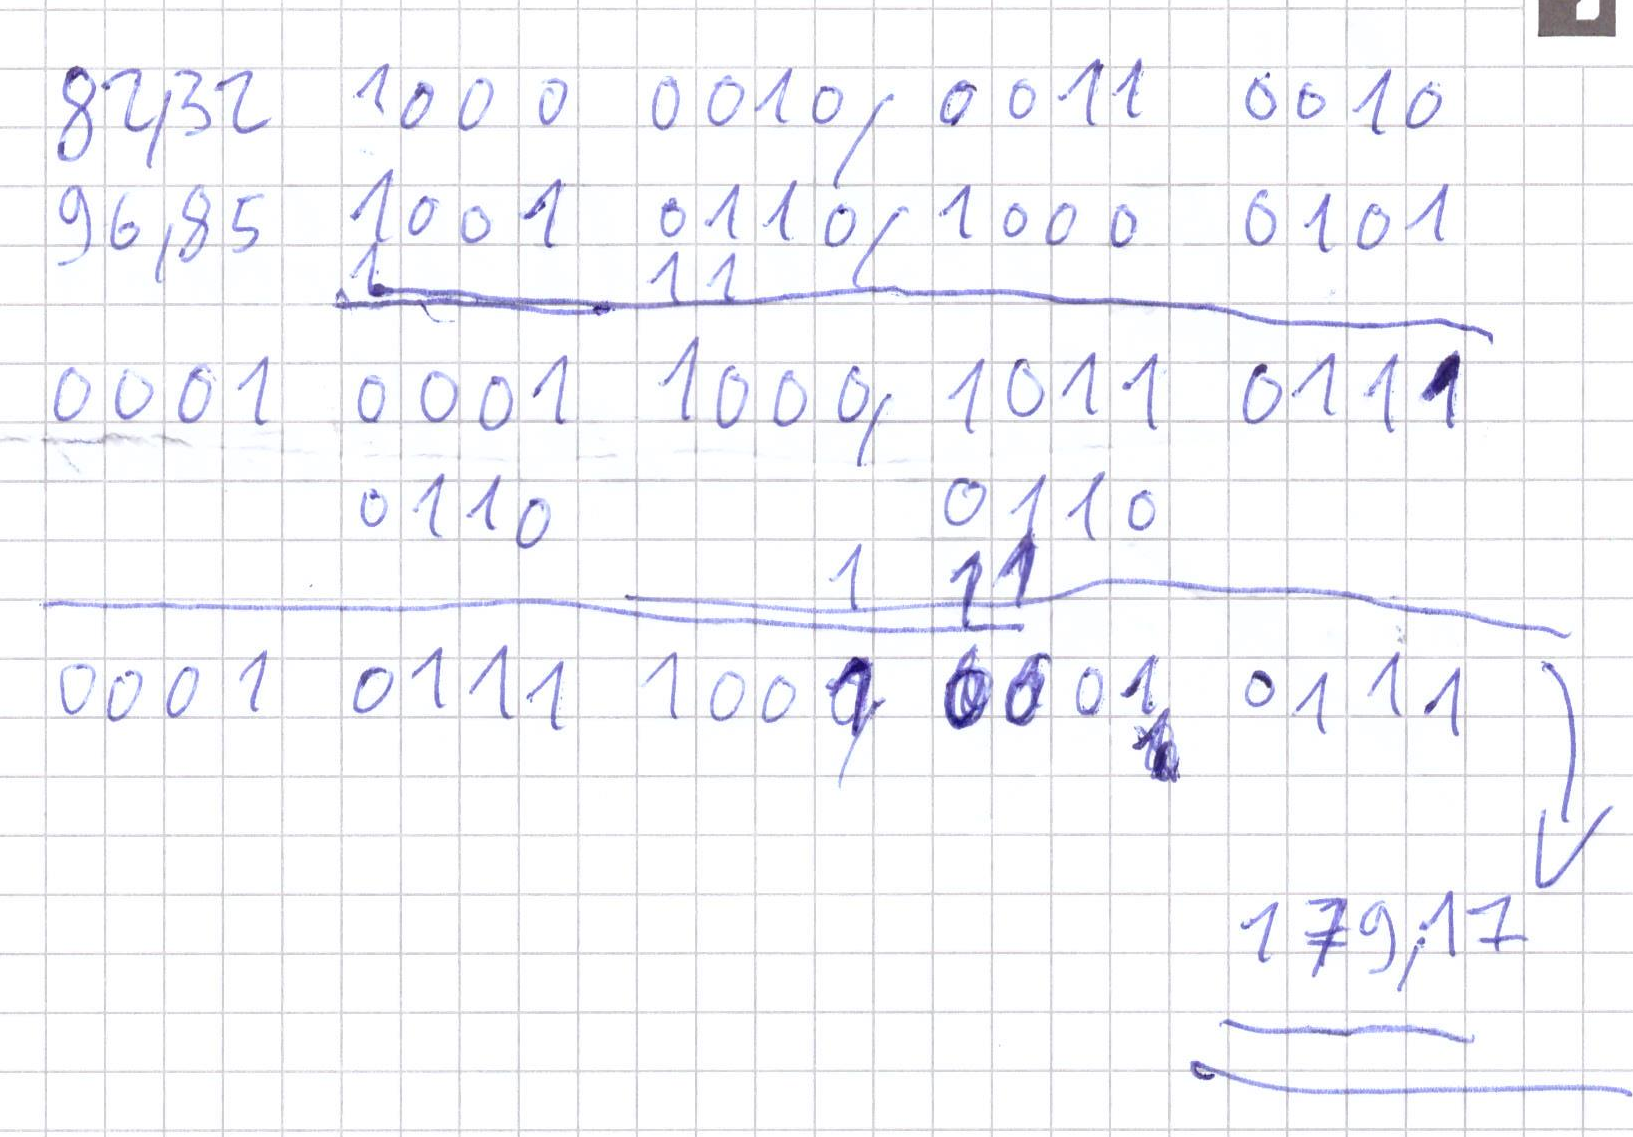 82,32 1000 0010, 0011 0010
96,85 1001 0110, 1000 0101
1 11
0001 0001 1000, 1011 0111
0110 0110
1 11
0001 0111 1001, 0001 0111
179,17